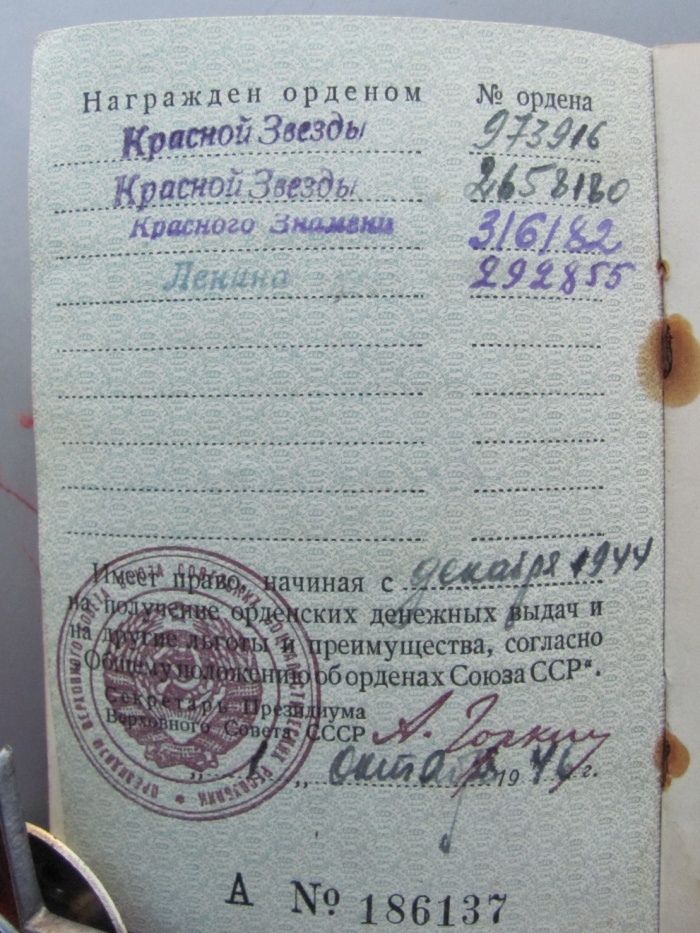 Награжден орденом № ордена
Красной Звезды 973916
Красной Звезды 2658180
Красного Знамени 316182
Ленина 292855
Имеет право, начиная с декабря 1944
на получение орденских денежных выдач и
на другие льготы и преимущества, согласно
„Общему положению об орденах Союза ССР“.
Секретарь Президиума
Верховного Совета СССР А. Горкин
„ 1 „ октября 1946 г.
ПРЕЗИДИУМ ВЕРХОВНОГО СОВЕТА СОЮЗА СОВЕТСКИХ СОЦИАЛИСТИЧЕСКИХ РЕСПУБЛИК
А № 186137